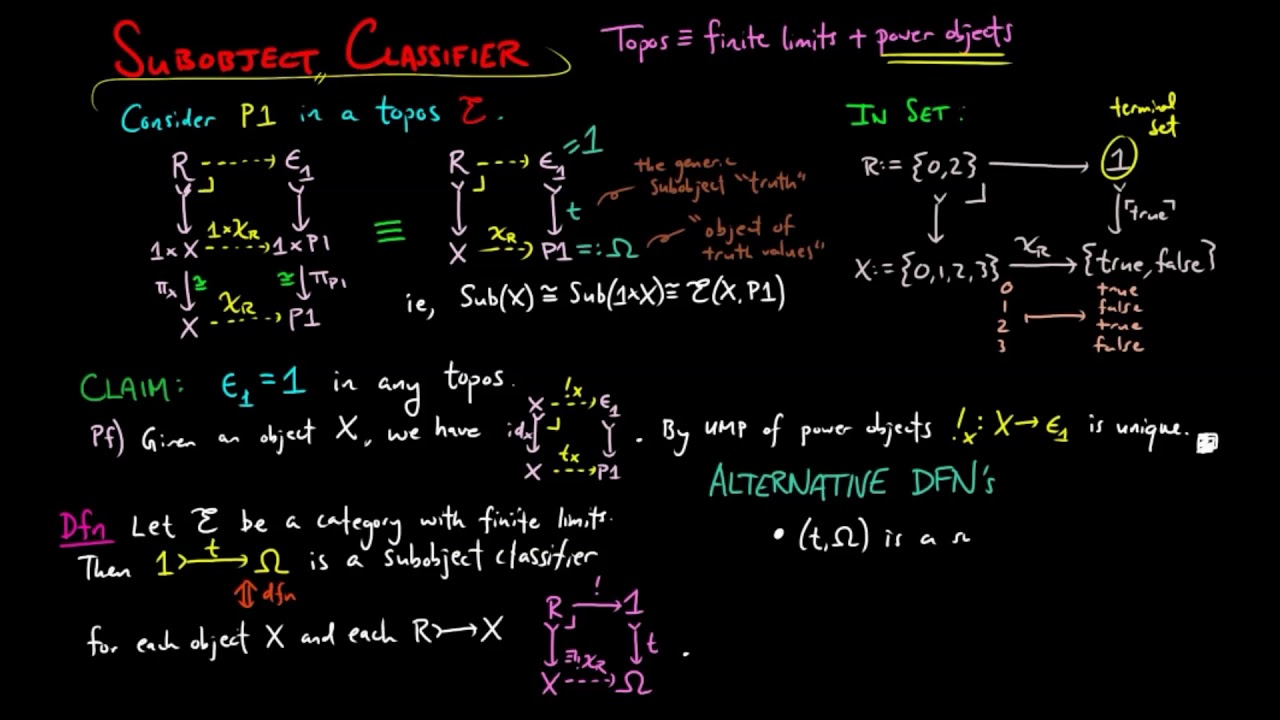 SUBOBJECT CLASSIFIER
Topos ≡ finite limits + power objects
Consider P1 in a topos ℰ.
R ∈₁
1×X 1×χR 1×P1
πX ≅ ≅ πP1
X χR P1
≡
R ∈₁ =1
t
X χR P1 =: Ω
the generic
subobject "truth"
"object of
truth values"
ie, Sub(X) ≅ Sub(1×X) ≅ ℰ(X, P1)
IN SET:
terminal
set
R := {0,2} → 1
⌜true⌝
X := {0,1,2,3} χR → {true, false}
0 true
1 false
2 true
3 false
CLAIM: ∈₁ = 1 in any topos.
Pf) Given an object X, we have
X !X ∈₁
idX
X tX P1
. By UMP of power objects !X : X → ∈₁ is unique.
ALTERNATIVE DFN's
• (t, Ω) is a
Dfn Let ℰ be a category with finite limits.
Then 1 t Ω is a subobject classifier
⇕ dfn
for each object X and each R ↣ X
R ! 1
t
X ∃! χR Ω .